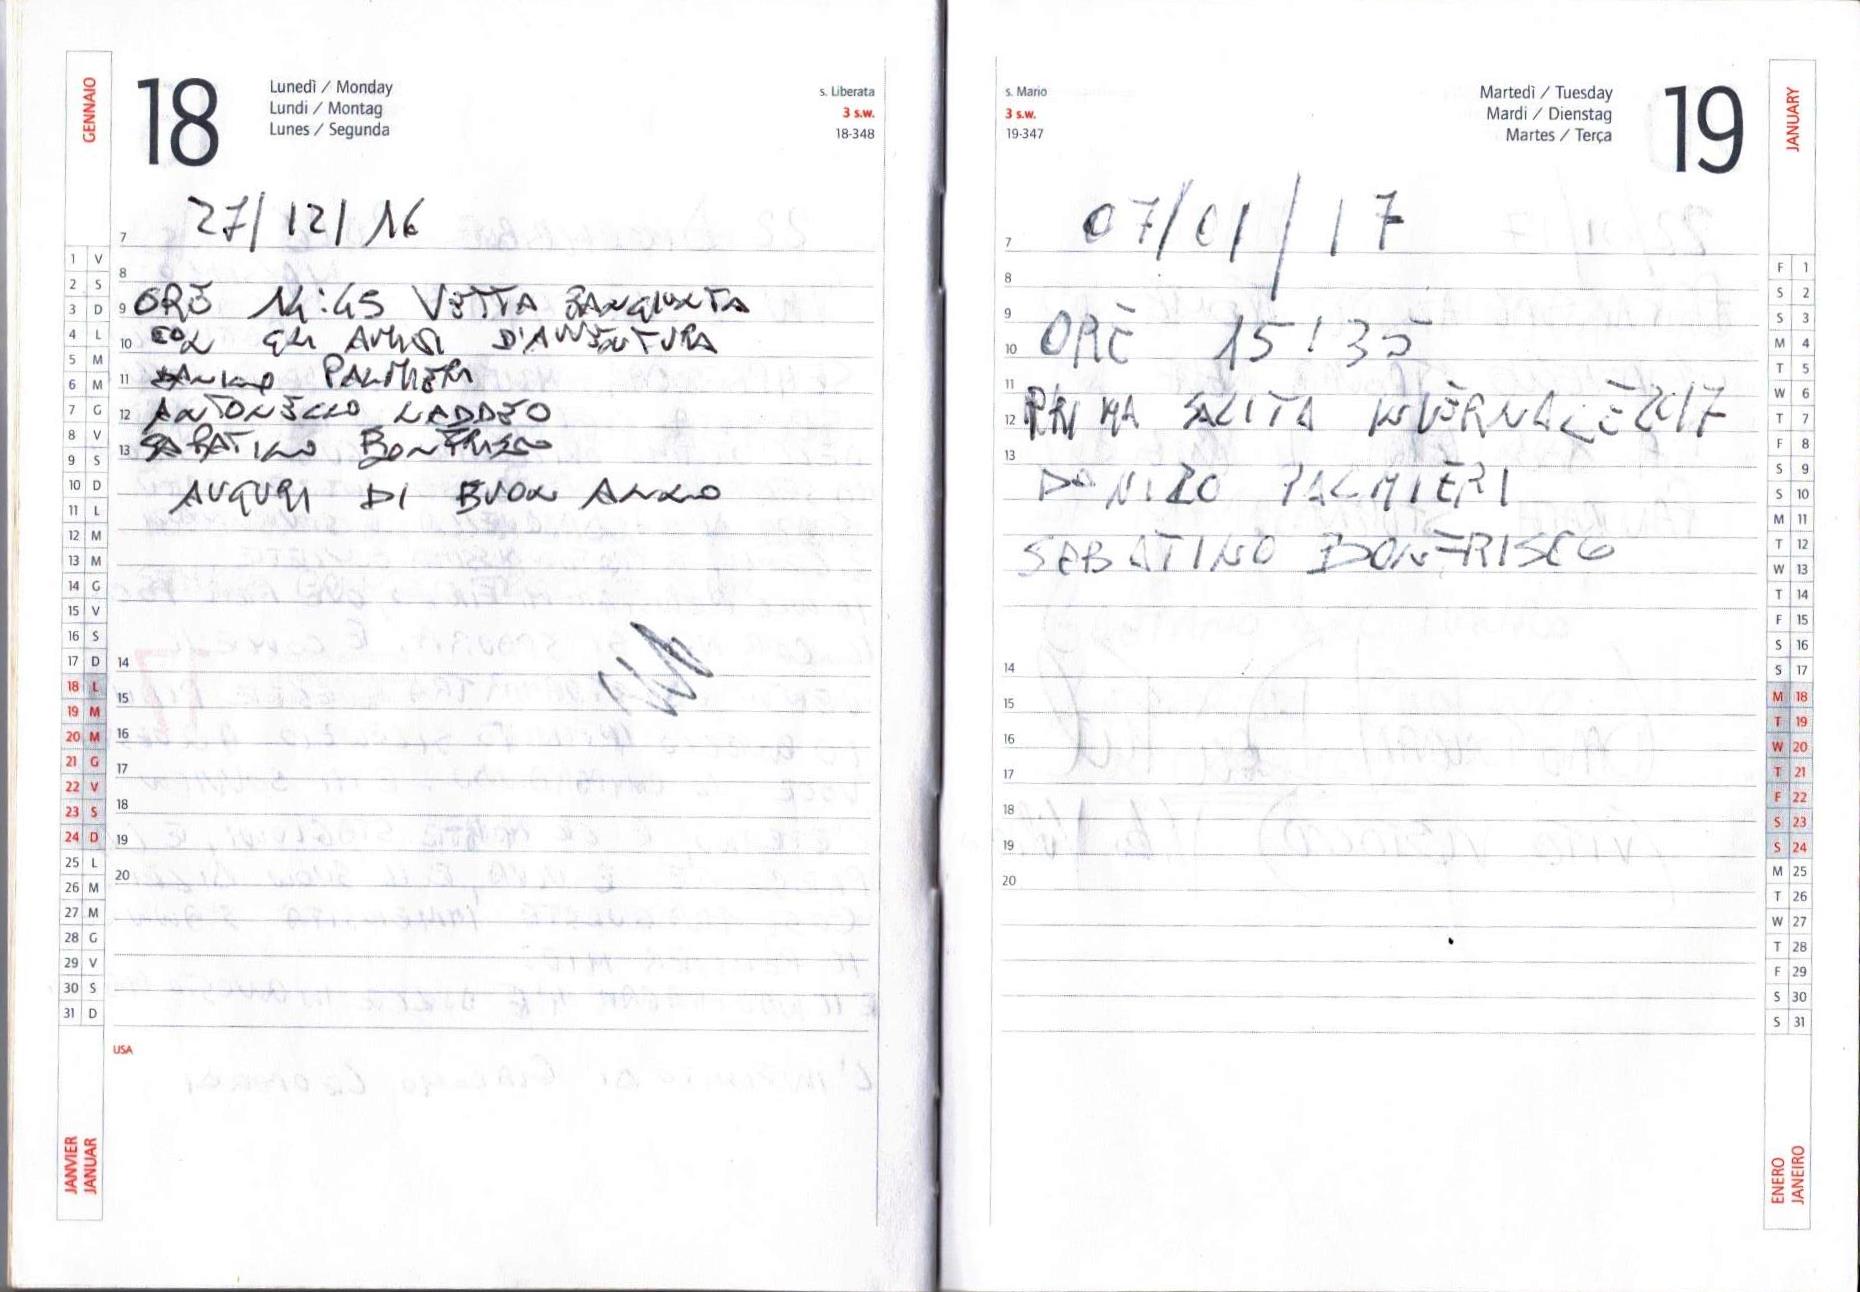 GENNAIO
18
Lunedì / Monday
Lundi / Montag
Lunes / Segunda
s. Liberata
3 s.w.
18-348
27/12/16
ORE 14:45 VETTA
CON GLI AMICI D'AVVENTURA
DANILO PALMIERI
ANTONELLO NADDEO
SABATINO BONFRISCO
AUGURI DI BUON ANNO
7
8
9
10
11
12
13
14
15
16
17
18
19
20
1 V
2 S
3 D
4 L
5 M
6 M
7 G
8 V
9 S
10 D
11 L
12 M
13 M
14 G
15 V
16 S
17 D
18 L
19 M
20 M
21 G
22 V
23 S
24 D
25 L
26 M
27 M
28 G
29 V
30 S
31 D
USA
JANVIER
JANUAR
s. Mario
3 s.w.
19-347
Martedì / Tuesday
Mardi / Dienstag
Martes / Terça
19
JANUARY
07/01/17
ORE 15:35
PRIMA SALITA INVERNALE 2017
DANILO PALMIERI
SABATINO BONFRISCO
7
8
9
10
11
12
13
14
15
16
17
18
19
20
F 1
S 2
S 3
M 4
T 5
W 6
T 7
F 8
S 9
S 10
M 11
T 12
W 13
T 14
F 15
S 16
S 17
M 18
T 19
W 20
T 21
F 22
S 23
S 24
M 25
T 26
W 27
T 28
F 29
S 30
S 31
ENERO
JANEIRO